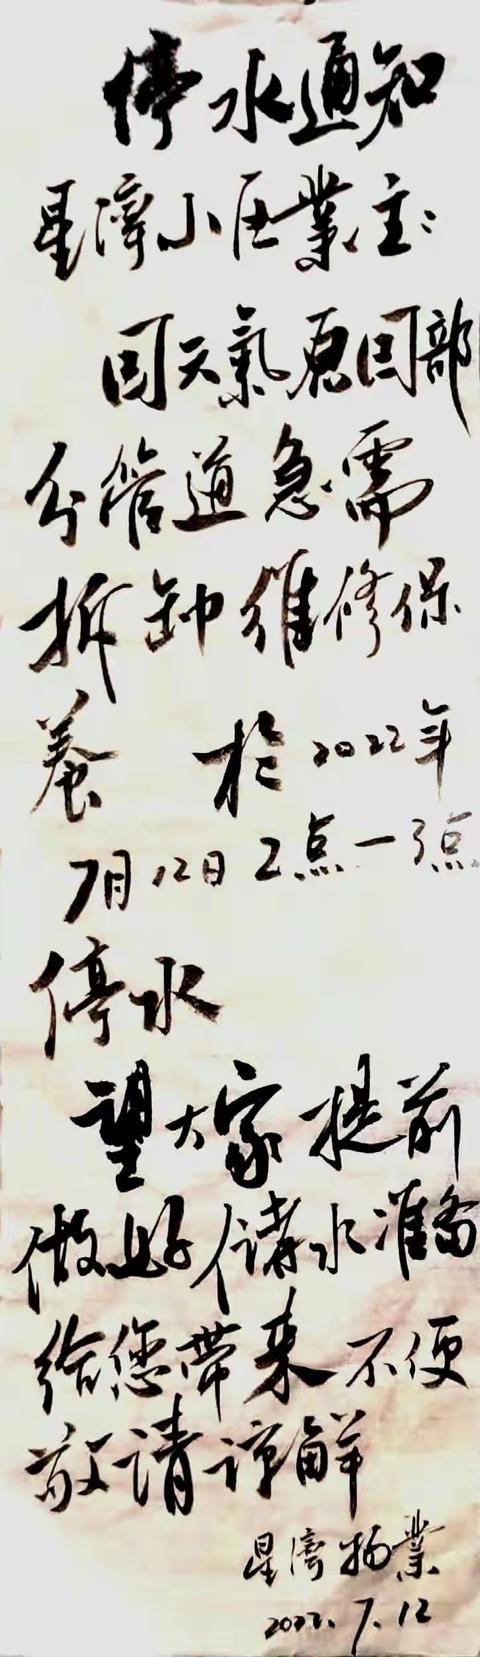 停水通知
星濟小区業主:
因天氣原因部
分管道急需
拆卸維修保
養 於2022年
7月12日2点一3点
停水
望大家提前
做好儲水准备
给您帶来不便
敬请谅解
星濟物業
2022.7.12